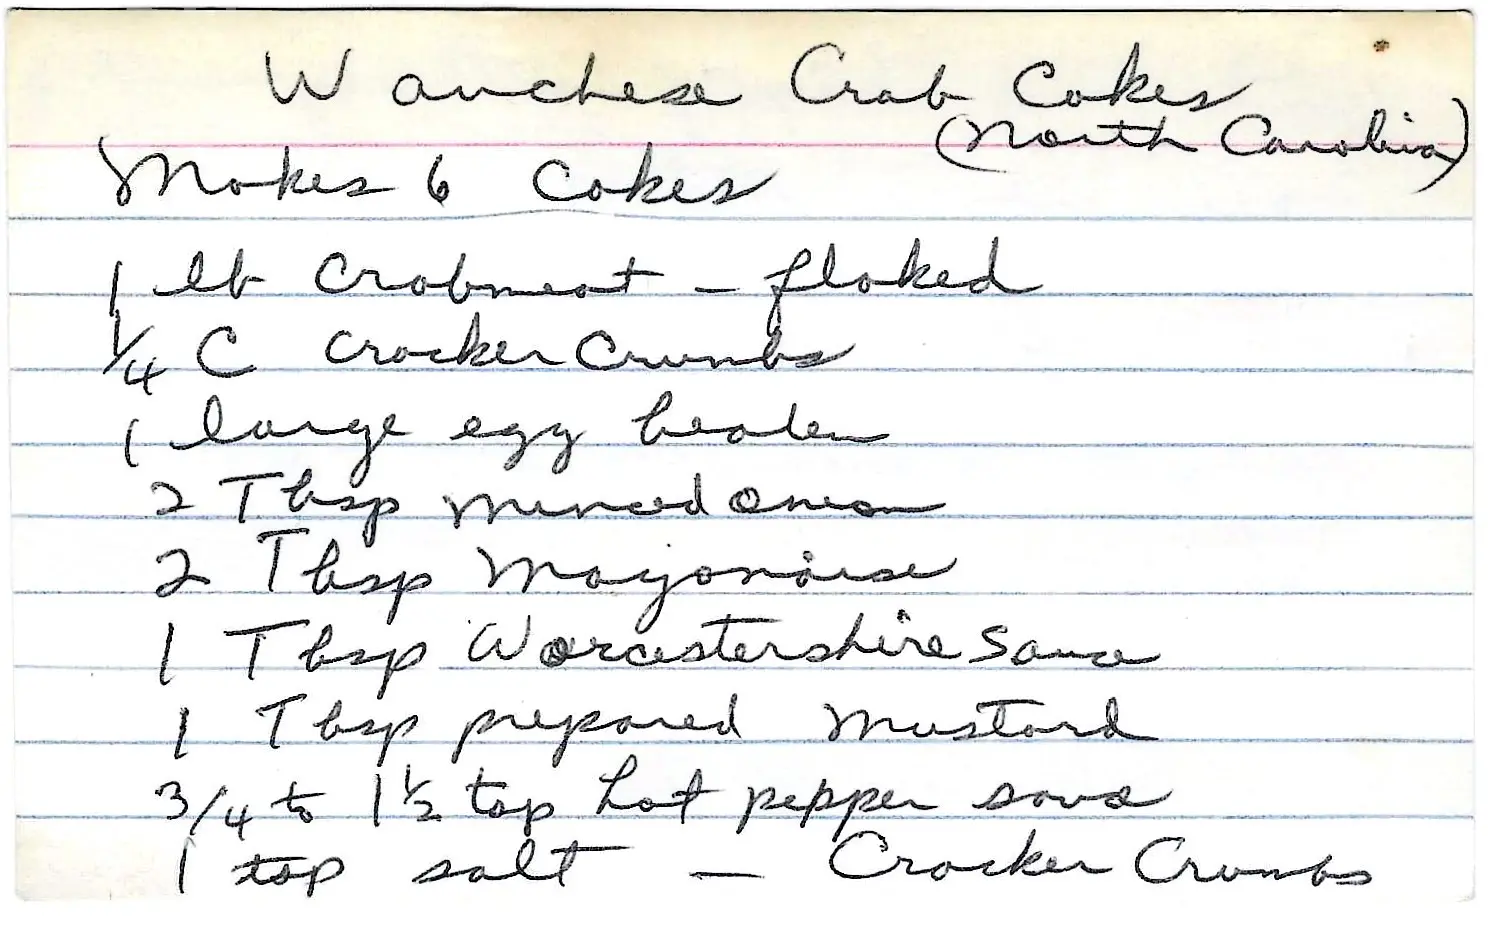 Wanchese Crab Cakes
(North Carolina)
Makes 6 Cakes
1 lb Crabmeat - flaked
1/4 C cracker Crumbs
1 large egg beaten
2 Tbsp minced onion
2 Tbsp Mayonaise
1 Tbsp Worcestershire Sauce
1 Tbsp prepared Mustard
3/4 to 1 1/2 tsp hot pepper sauce
1 tsp salt — Cracker Crumbs